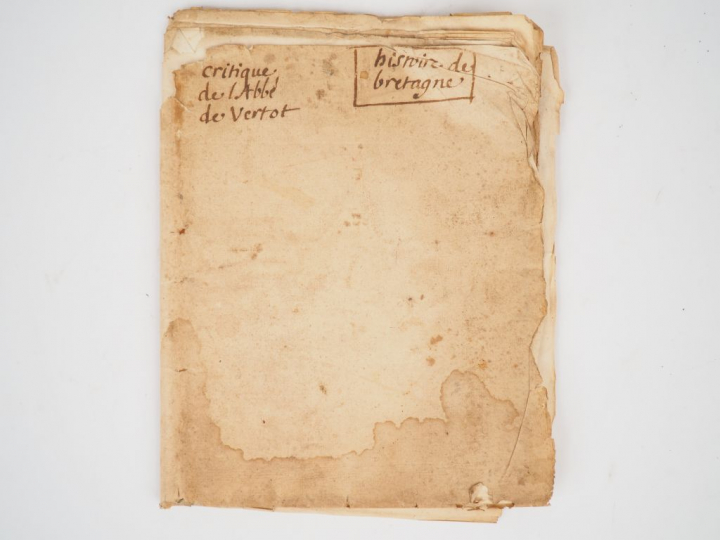 critique
de l'Abbé
de Vertot
histoire de
bretagne